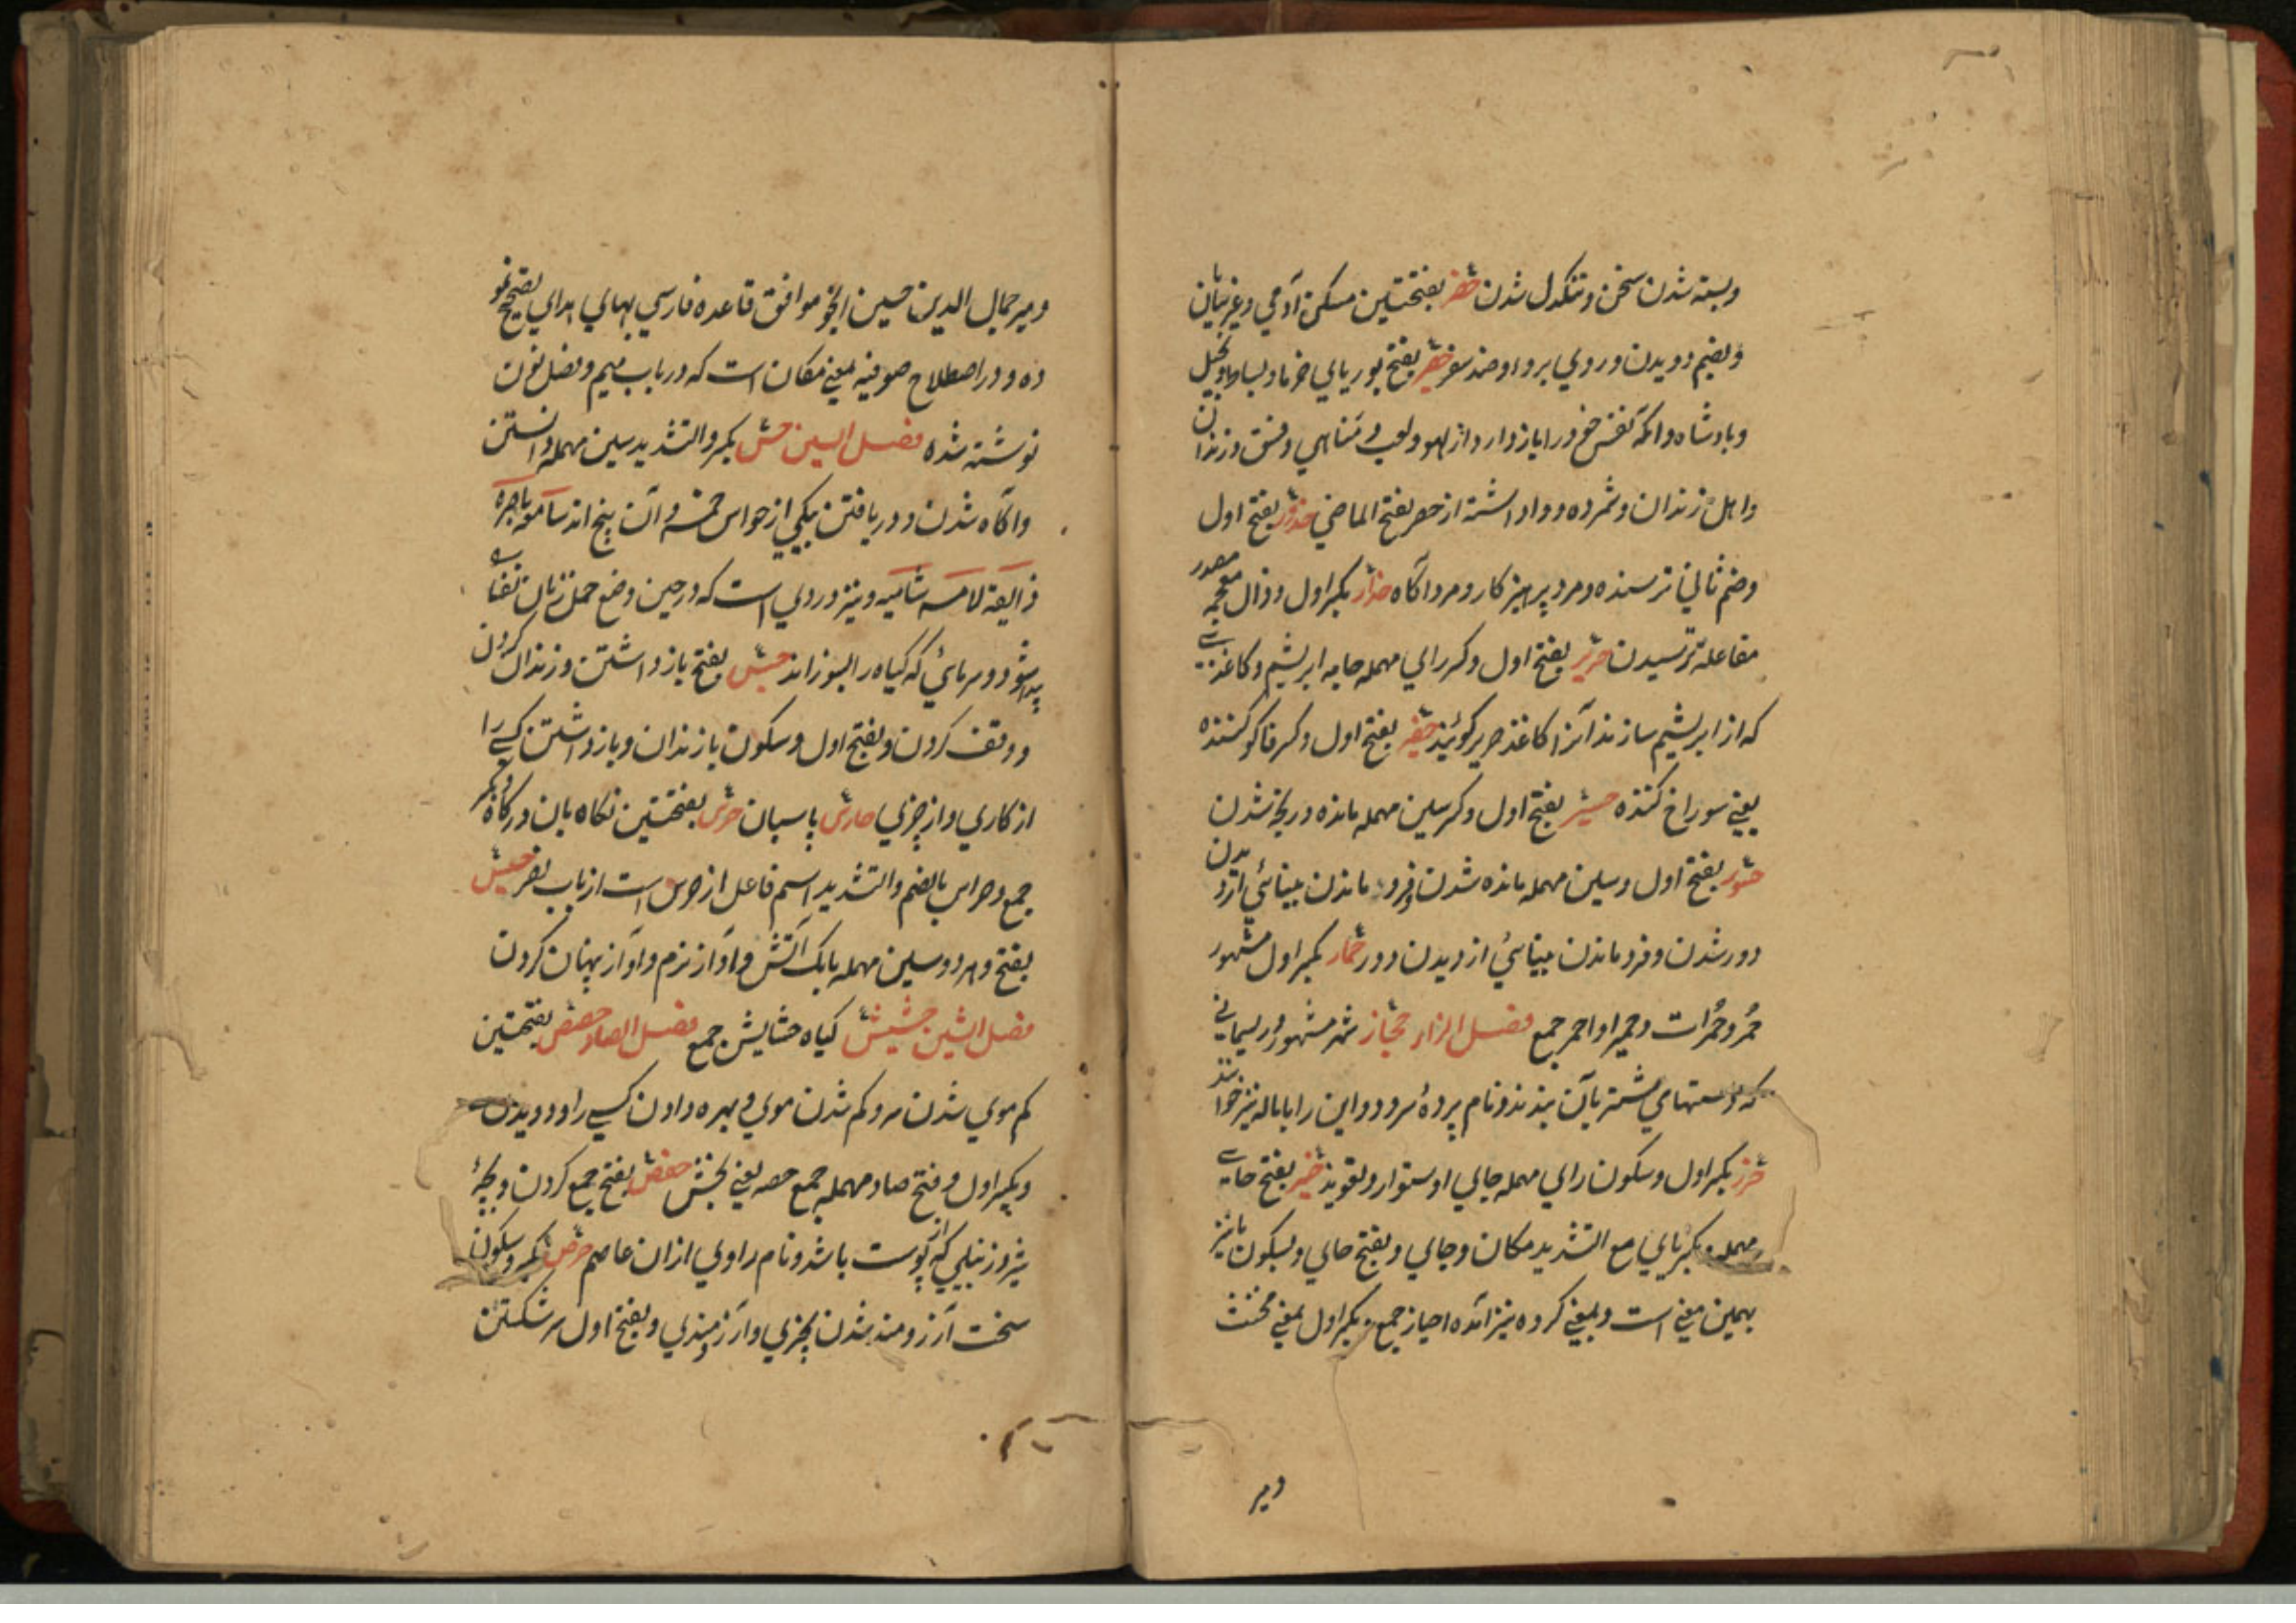 وبسته شدن سخن و تنکدل شدن حضر بفتحتین مسکن آدمی وغر نیان
وبضم دویدن و روی برو او ضد سفر حصیر بفتح بوریای خرما و بساط وبخیل
وبادشاه وانکه نفس خود را باز دارد از لهو ولعب و مناهی وفسق وزندان
واهل زندان وشمرده و وا داشته از حصر بفتح الماضی حذور بفتح اول
وضم ثانی ترسنده ومرد پرهیز کار ومرد آکاه حذار بکسر اول وذال معجمه مصدر
مفاعله ترسیدن حریر بفتح اول وکسر رای مهمله جامه ابریشم وکاغذی
که از ابریشم سازند آنرا کاغذ حریر کویند حفیر بفتح اول وکسر فا کو کننده
یعنی سوراخ کننده حسیر بفتح اول وکسر سین مهمله مانده ور نجه شدن
حسور بفتح اول وسین مهمله مانده شدن وفرو ماندن بینائی از دیدن
دور شدن وفرو ماندن بینائی از دیدن دور حمار بکسر اول مشهور
حُمُر وحُمُرات وحمیر واحمر جمع فصل الزاء حجاز شهر مشهور وریسمانی
که دستهای شتر بآن بندند ونام پرده سرود واین را با باله نیز خوانند
حرز بکسر اول وسکون رای مهمله جای استوار وتعویذ حیز بفتح حای
مهمله وبکسر یای مع التشدید مکان وجای وبفتح حای وبسکون یا نیز
بهمین معنی است وبمعنی کرده نیز آمده احیاز جمع وبکسر اول بمعنی مخنث
ومیر
ومیر جمال الدین حسین انجو موافق قاعده فارسی بهای ابدای تصحیح نمو
ده و در اصطلاح صوفیه بمعنی مکان است که در باب میم وفصل نون
نوشته شده فصل السین حس بکسر والتشدید سین مهمله دانستن
وآکاه شدن و دریافتن بیکی از حواس خمسه و آن پنج اند سامعه باصره
ذایقه لامسه شامه ونیز دردی است که در حین وضع حمل زنان نفسا
پیدا شود و سرمائی که کیاه را بسوزاند حبس بفتح باز داشتن وزندان کردن
و وقف کردن وبفتح اول وسکون با زندان وباز داشتن کسی را
از کاری واز چیزی حارس پاسبان حرس بفتحتین نکاه بان در کاه
جمع وحراس بالضم والتشدید اسم فاعل از حرس است از باب نصر حسیس
بفتح وهر دو سین مهمله بانک آتش وآواز نرم وآواز پنهان کردن
فصل الشین حشیش کیاه حشایش جمع فصل الصاد حصص بفتحتین
کم موی شدن سر وکم شدن موی وبهره دادن کسی را و دویدن
وبکسر اول وفتح صاد مهمله جمع حصه یعنی بخش حفص بفتح جمع کردن وبچهٔ
شیر وزنبیلی که از پوست باشد ونام راوی از ان عاصم حرص بکسر وسکون
سخت آرزومند شدن بچیزی وآرزومندی وبفتح اول سر شکستن